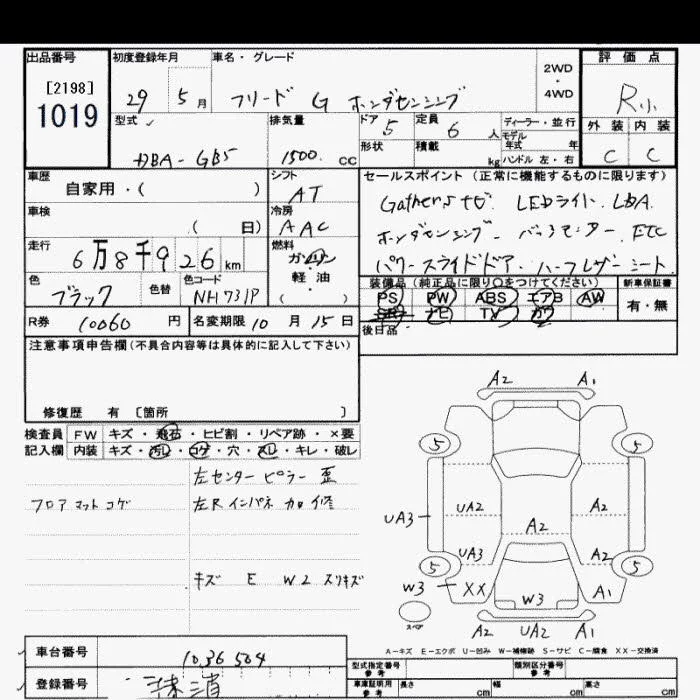 出品番号 初度登録年月 車名・グレード 評価点
[2198]
1019
29 5月 フリード G ホンダセンシング 2WD・4WD R小
型式 排気量 ドア 定員 ディーラー・並行 外装 内装
DBA-GB5 1500. CC 5 6人 モデル年式 年 C C
形状 積載 kg ハンドル 左・右
車歴 シフト セールスポイント(正常に機能するものに限ります)
自家用・( ) AT Gathersナビ LEDライト LDA.
車検 冷房
( 日) AAC ホンダセンシング. バックモニター. ETC
走行 燃料
6万8千926km ガソリン・軽油・( ) パワースライドドア. ハーフレザーシート.
色 色替 色コード 装備品(純正品に限り○をつけてください) 新車保証書
ブラック NH731P PS PW ABS エアB AW 有・無
R券 10060円 名変期限 10月15日 SR ナビ TV カワ
後日品
注意事項申告欄(不具合内容等は具体的に記入して下さい)
修復歴 有 〔箇所 〕
検査員 FW キズ・飛石・ヒビ割・リペア跡・×要
記入欄 内装 キズ・汚レ・コゲ・穴・スレ・キレ・破レ
左センターピラー 歪
フロアマットコゲ 左Rインパネ 加修
キズ E W2 スリキズ
A2 A1
5 5
UA3 UA2 A2
A2
UA3 A2
5 5
W3 XX W3 A1
スペア A2 UA2 A1
A-キズ E-エクボ U-凹み W-補修跡 S-サビ C-腐食 XX-交換済
車台番号 1036564
登録番号 抹消
型式指定番号 参考 類別区分番号 参考
車庫証明用 参考 長さ cm 幅 cm 高さ cm